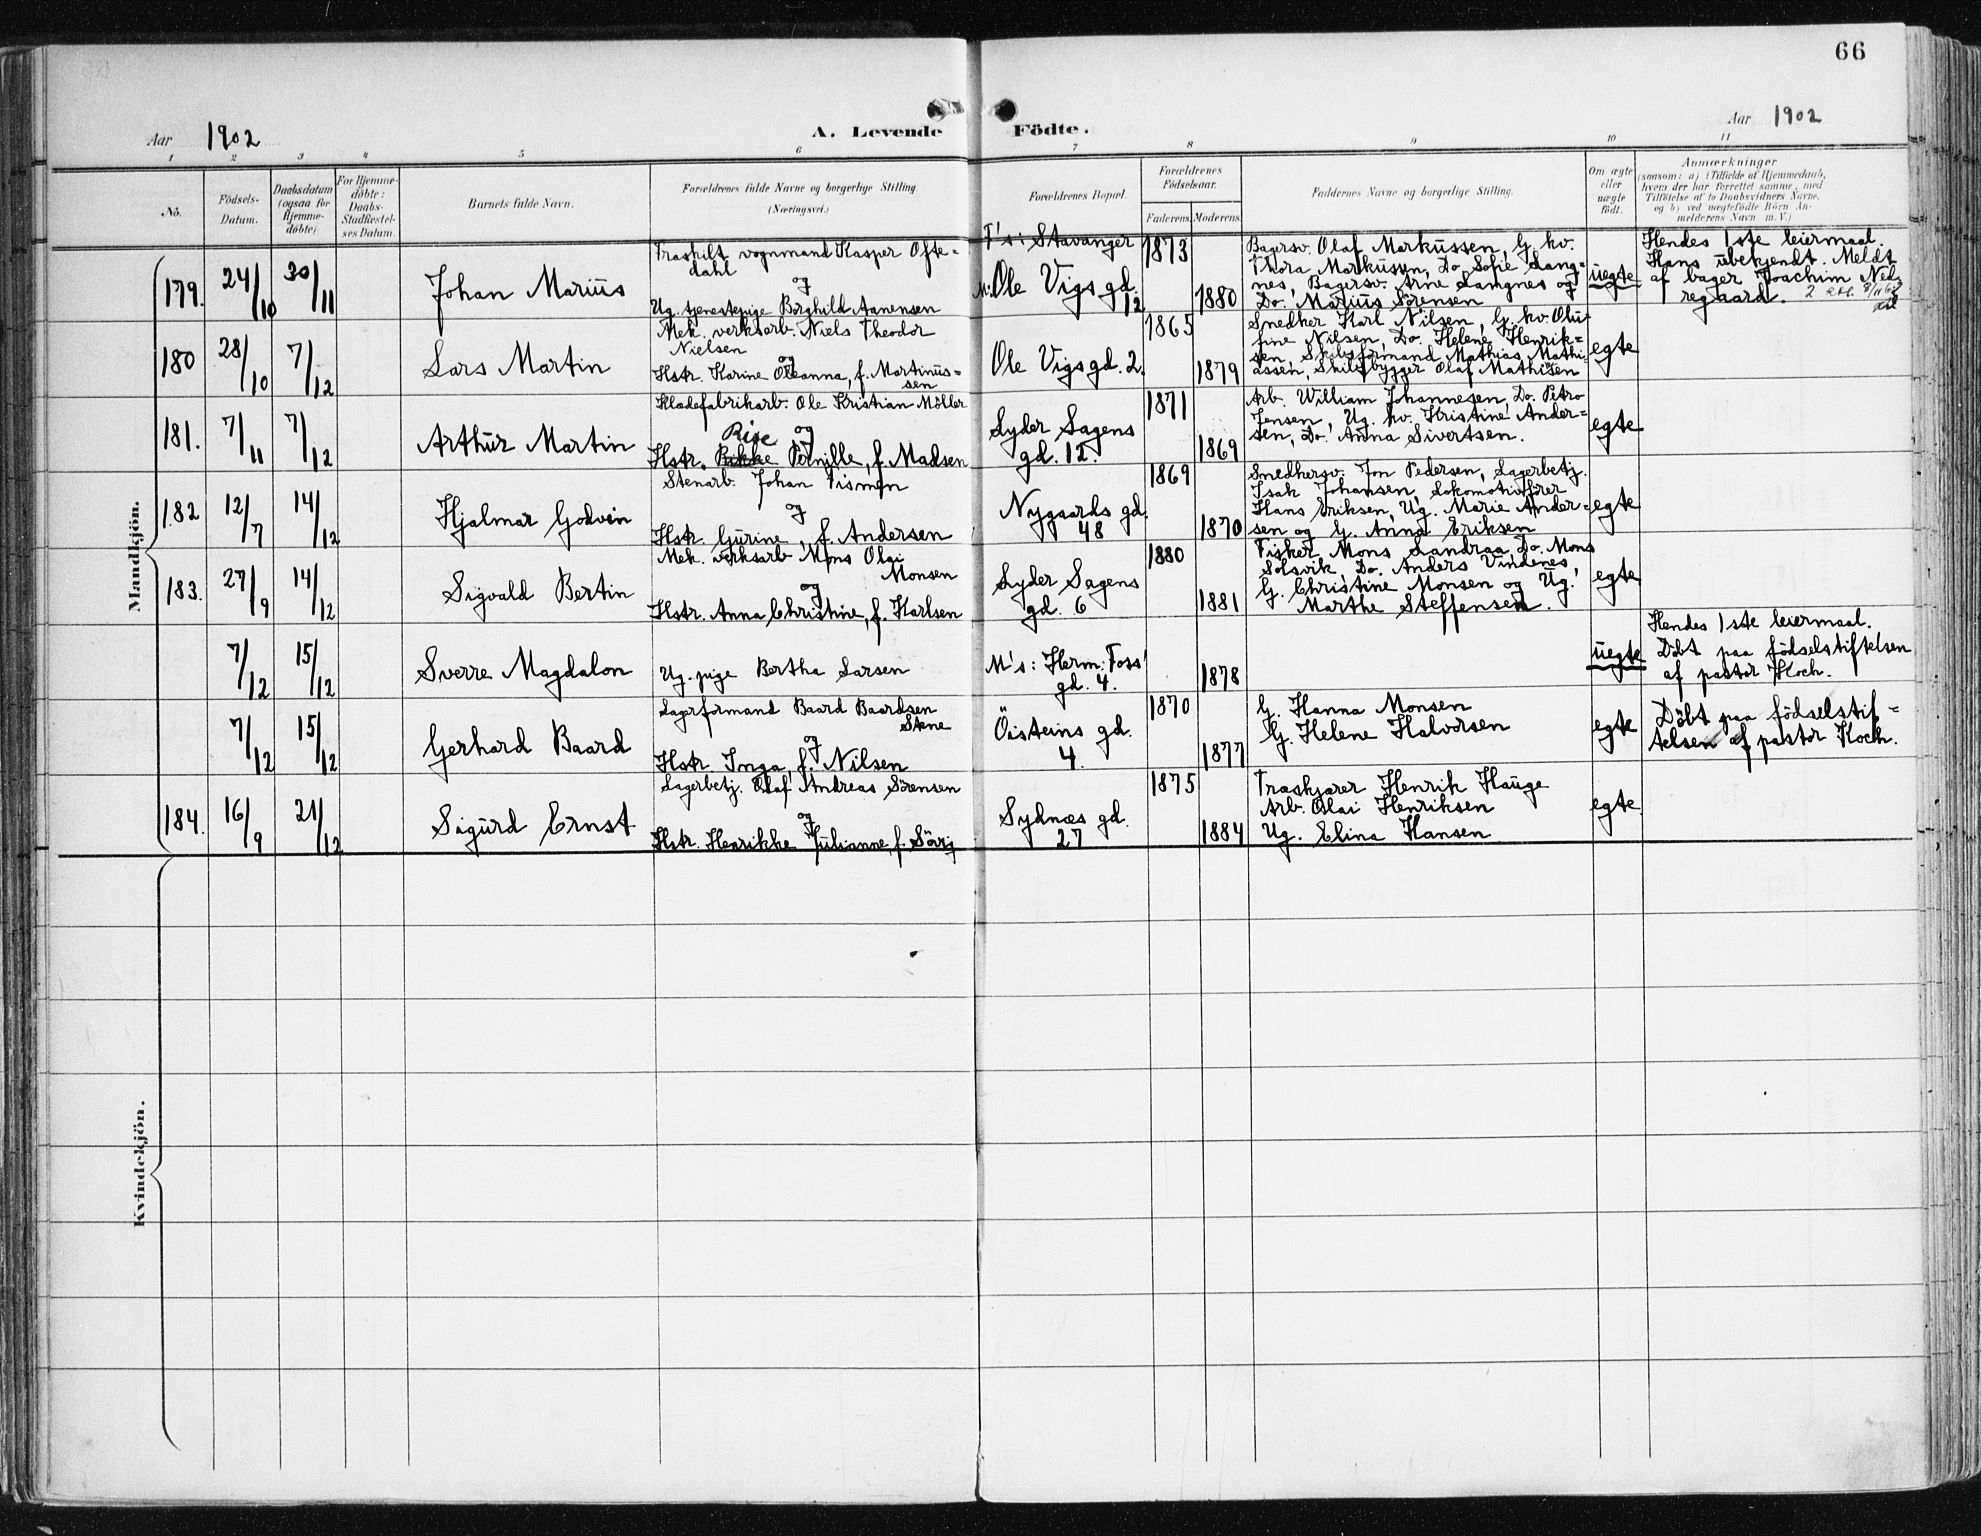 66
Aar 1902
A. Levende Födte.
Aar 1902
1 2 3 4 5 6 7 8 9 10 11
No.
Födsels-Datum.
Daabsdatum (ogsaa för Hjemme-döbte)
For Hjemme-döbte: Daabs-Stadfæstel-ses Datum.
Barnets fulde Navn.
Forældrenes fulde Navne og borgerlige Stilling. (Næringsvei.)
Forældrenes Bopæl.
Forældrenes Födselsaar.
Faderens Moderens
Faddernes Navne og borgerlige Stilling.
Om ægte eller uægte födt.
Anmærkninger
(saasom: a) i Tilfælde af Hjemmedaab,
hvem der har forrettet samme, med
Tilföielse af to Daabsvidners Navne,
og b) ved uægtefödte Börn An-
melderens Navn m. V.)
Mandkjön.
179. 24/10 30/11
Johan Marius
Fraskilt vognmand Kasper Ofte-
dahl
og
Ug. tjenestepige Borghild Aanensen
F's: Stavanger
M: Ole Vigs gd.
12
1873
1880
Bagersv. Olaf Markussen, G. kv.
Thora Markussen, Do. Sofie Lang-
nes, Bagersv. Arne Langnes og
Do. Marius Sörensen
uegte
Hendes 1ste leiermaal.
Hans ubekjendt. Meldt
af bager Joachim Ned-
regaard.
180 28/10 7/12
Lars Martin
Mek. verksarb. Niels Theodor
Nielsen
og
Hstr. Karine Oleanna, f. Martinus-
sen
Ole Vigs gd. 2.
1865
1879
Snedker Karl Nilsen, G. kv. Olu-
fine Nilsen, Do. Helene Henrik-
sen, Skibsformand Mathias Mathi-
assen, Skibsbygger Olaf Mathisen
egte
181. 7/11 7/12
Arthur Martin
Klædefabrikarb. Ole Kristian Möller
og
Hstr. Pernille, f. Madsen
Lyder Sagens
gd. 12.
1871
1869
Arb. William Johannesen, Do. Petro
Jensen, Ug. kv. Kristine Ander-
sen, Do. Anna Sivertsen.
egte
182 12/7 14/12
Hjalmar Godvin
Stenarb. Johan Tismen
og
Hstr. Gurine, f. Andersen
Nygaards gd.
48
1869
1870
Snedkersv. Jon Pedersen, Lagerbetj.
Isak Johansen, Lokomotivförer
Hans Eriksen, Ug. Marie Ander-
sen og G. Anna Eriksen
egte
183. 27/9 14/12
Sigvald Bertin
Mek. verksarb Mons Olai
Monsen
og
Hstr. Anna Christine, f. Karlsen
Lyder Sagens
gd. 6
1880
1881
Fisker Mons Landraa, Do. Mons
Solsvik Do. Anders Vindenes,
G. Christine Monsen og Ug.
Marthe Steffensen.
egte
7/12 15/12
Sverre Magdalon
Ug. pige Bertha Larsen
M's: Herm: Foss'
gd. 4.
1878
uegte
Hendes 1ste leiermaal.
Döbt paa födselstiftelsen
af pastor Koch.
7/12 15/12
Gerhard Baard
Lagerformand Baard Baardsen
Stene
og
Hstr. Inga, f. Nilsen
Öisteins gd.
4.
1870
1877
G. Hanna Monsen
G. Helene Halvorsen
egte
Döbt paa födselstif-
telsen af pastor Koch.
184. 16/9 21/12
Sigurd Ernst
Lagerbetj. Olaf Andreas Sörensen
og
Hstr. Henrikke Julianne, f.
Sydnæs gd.
27
1875
1884
Træskjærer Henrik Hauge
Arb. Olai Henriksen
Ug. Elina Hansen
egte
Kvindekjön.